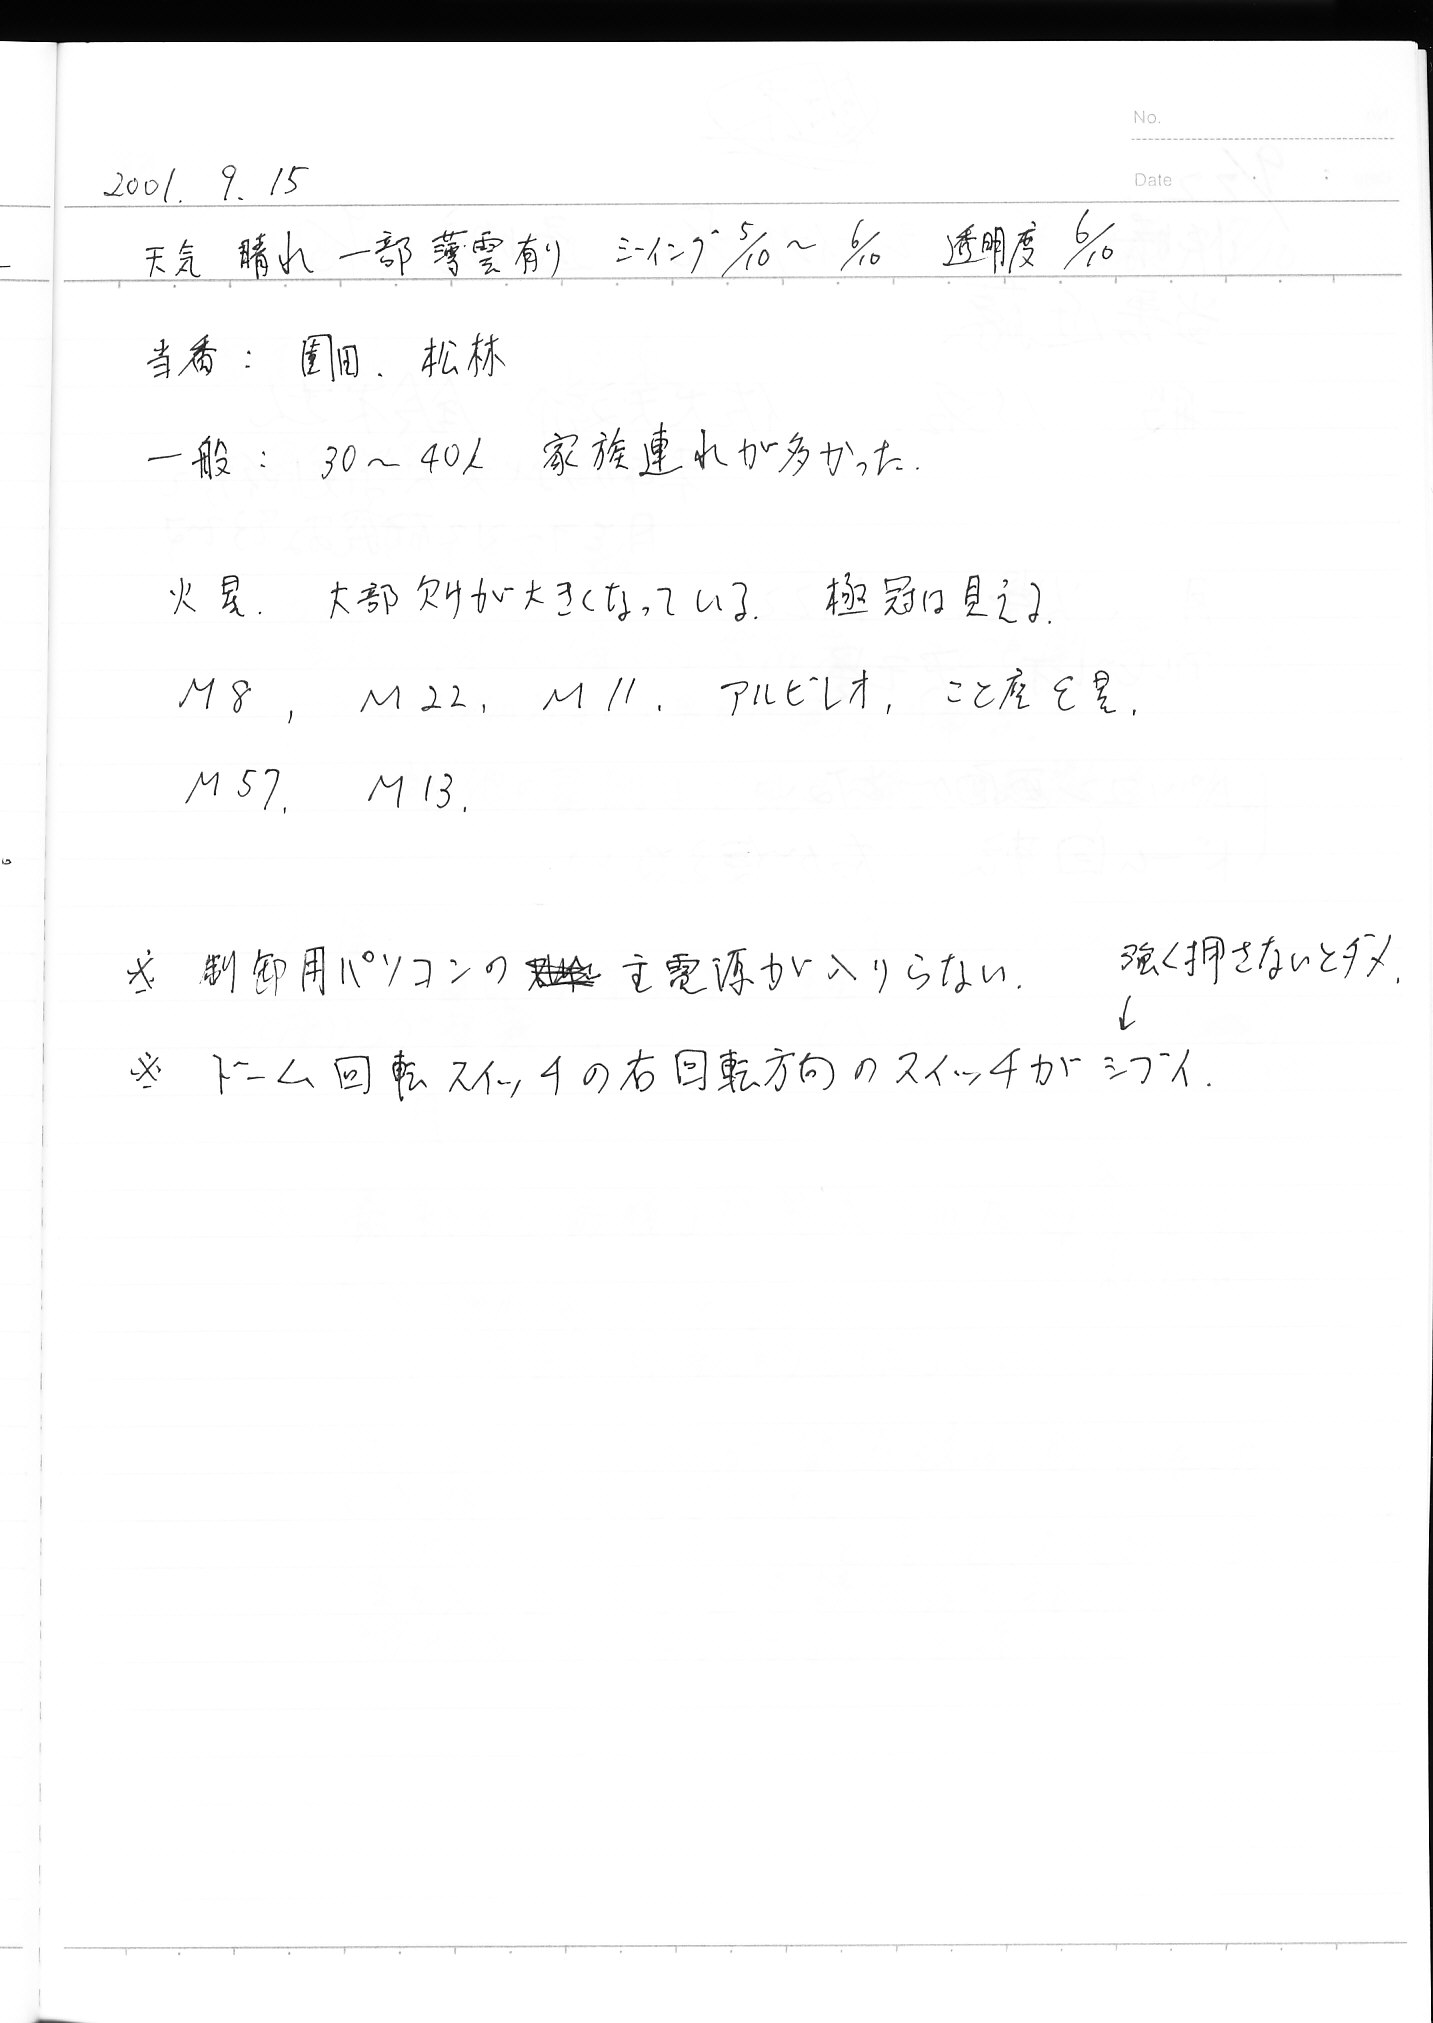 No.
Date
2001. 9. 15
天気 晴れ 一部薄雲有り シーイング 5/10〜6/10 透明度 6/10
当番: 園田、松林
一般: 30〜40人 家族連れが多かった.
火星. 大部欠けが大きくなっている. 極冠は見える.
M8, M22, M11. アルビレオ, こと座ε星,
M57. M13.
※ 制御用パソコンの 主電源が入りらない.
強く押さないとダメ.
↓
※ ドーム回転スイッチの右回転方向のスイッチがシブイ.